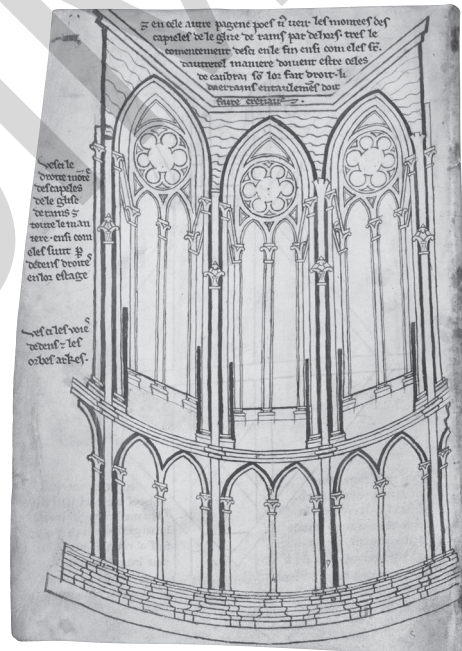 ⁊ en cele autre pagene poes ũ ueir les montees des
capieles de le glize de rains par dehors tres le
comencement desci en le fin ensi com eles sũt
dautretel maniere doiuent estre celes
de canbrai sõ lor fait droit li
daerrains entaulemẽs doit
faire cretiaus
vesci le
droite mõtee
des capeles
de le glise
de rains ⁊
toute le man
iere ensi com
eles sunt p̲
dedens droites
en lor estage
vesci les voies
dedens ⁊ les
orbes arkes